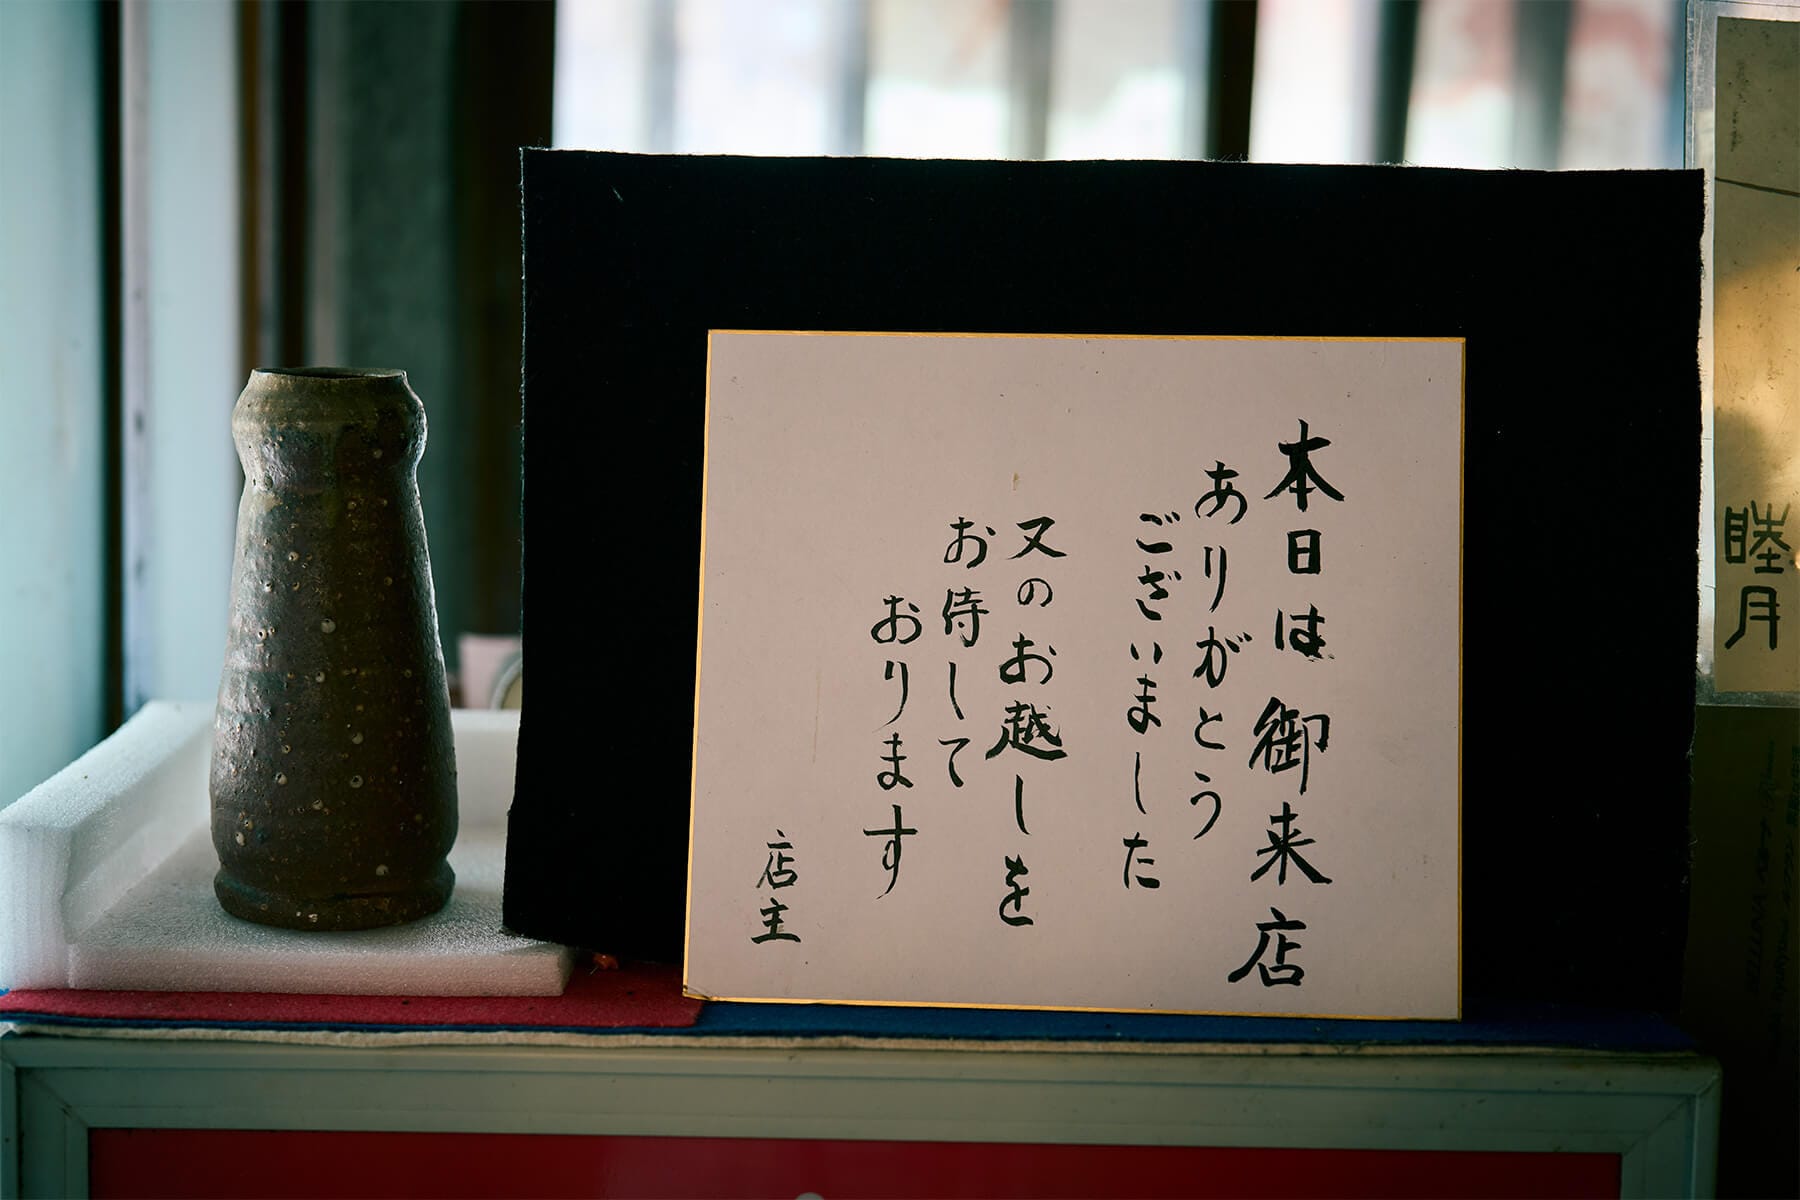 本日は御来店
ありがとう
ございました
又のお越しを
お待して
おります
店主
睦月